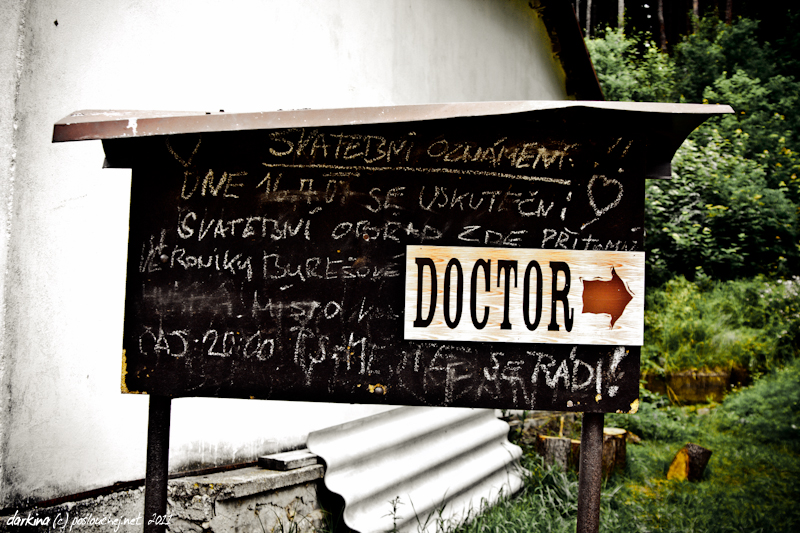 SVATEBNÍ OZNÁMENÍ !!
DNE SE USKUTEČNÍ
SVATEBNÍ OBŘAD ZDE PŘÍTOMNÉ
VERONIKY BUREŠOVÉ
DOCTOR
MÍSTO
ČAS 20:00 SE RÁDI!
darkina (c) poslouchej.net 2011